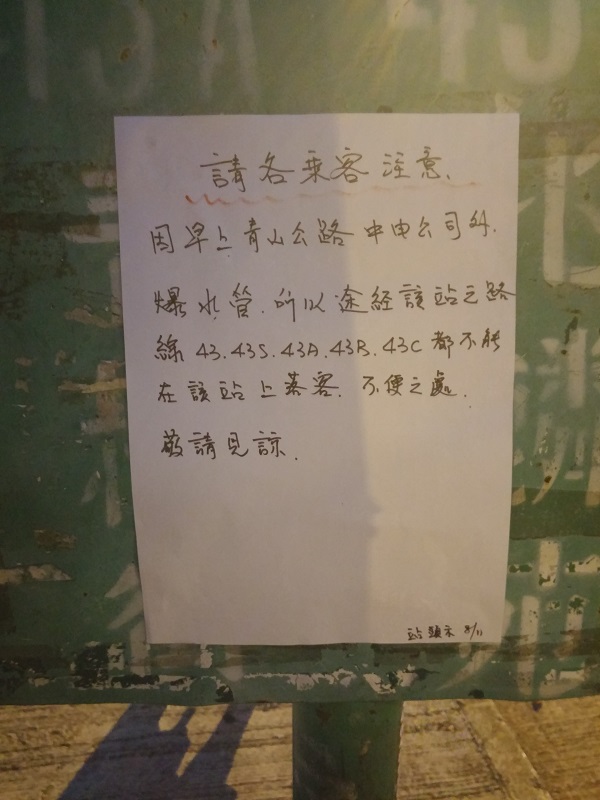 請各乘客注意.
因早上青山公路中电公司外.
爆水管.所以途經該站之路
線43.43S.43A.43B.43C都不能
在該站上落客.不便之處.
敬請見諒.
站頭示 8/11